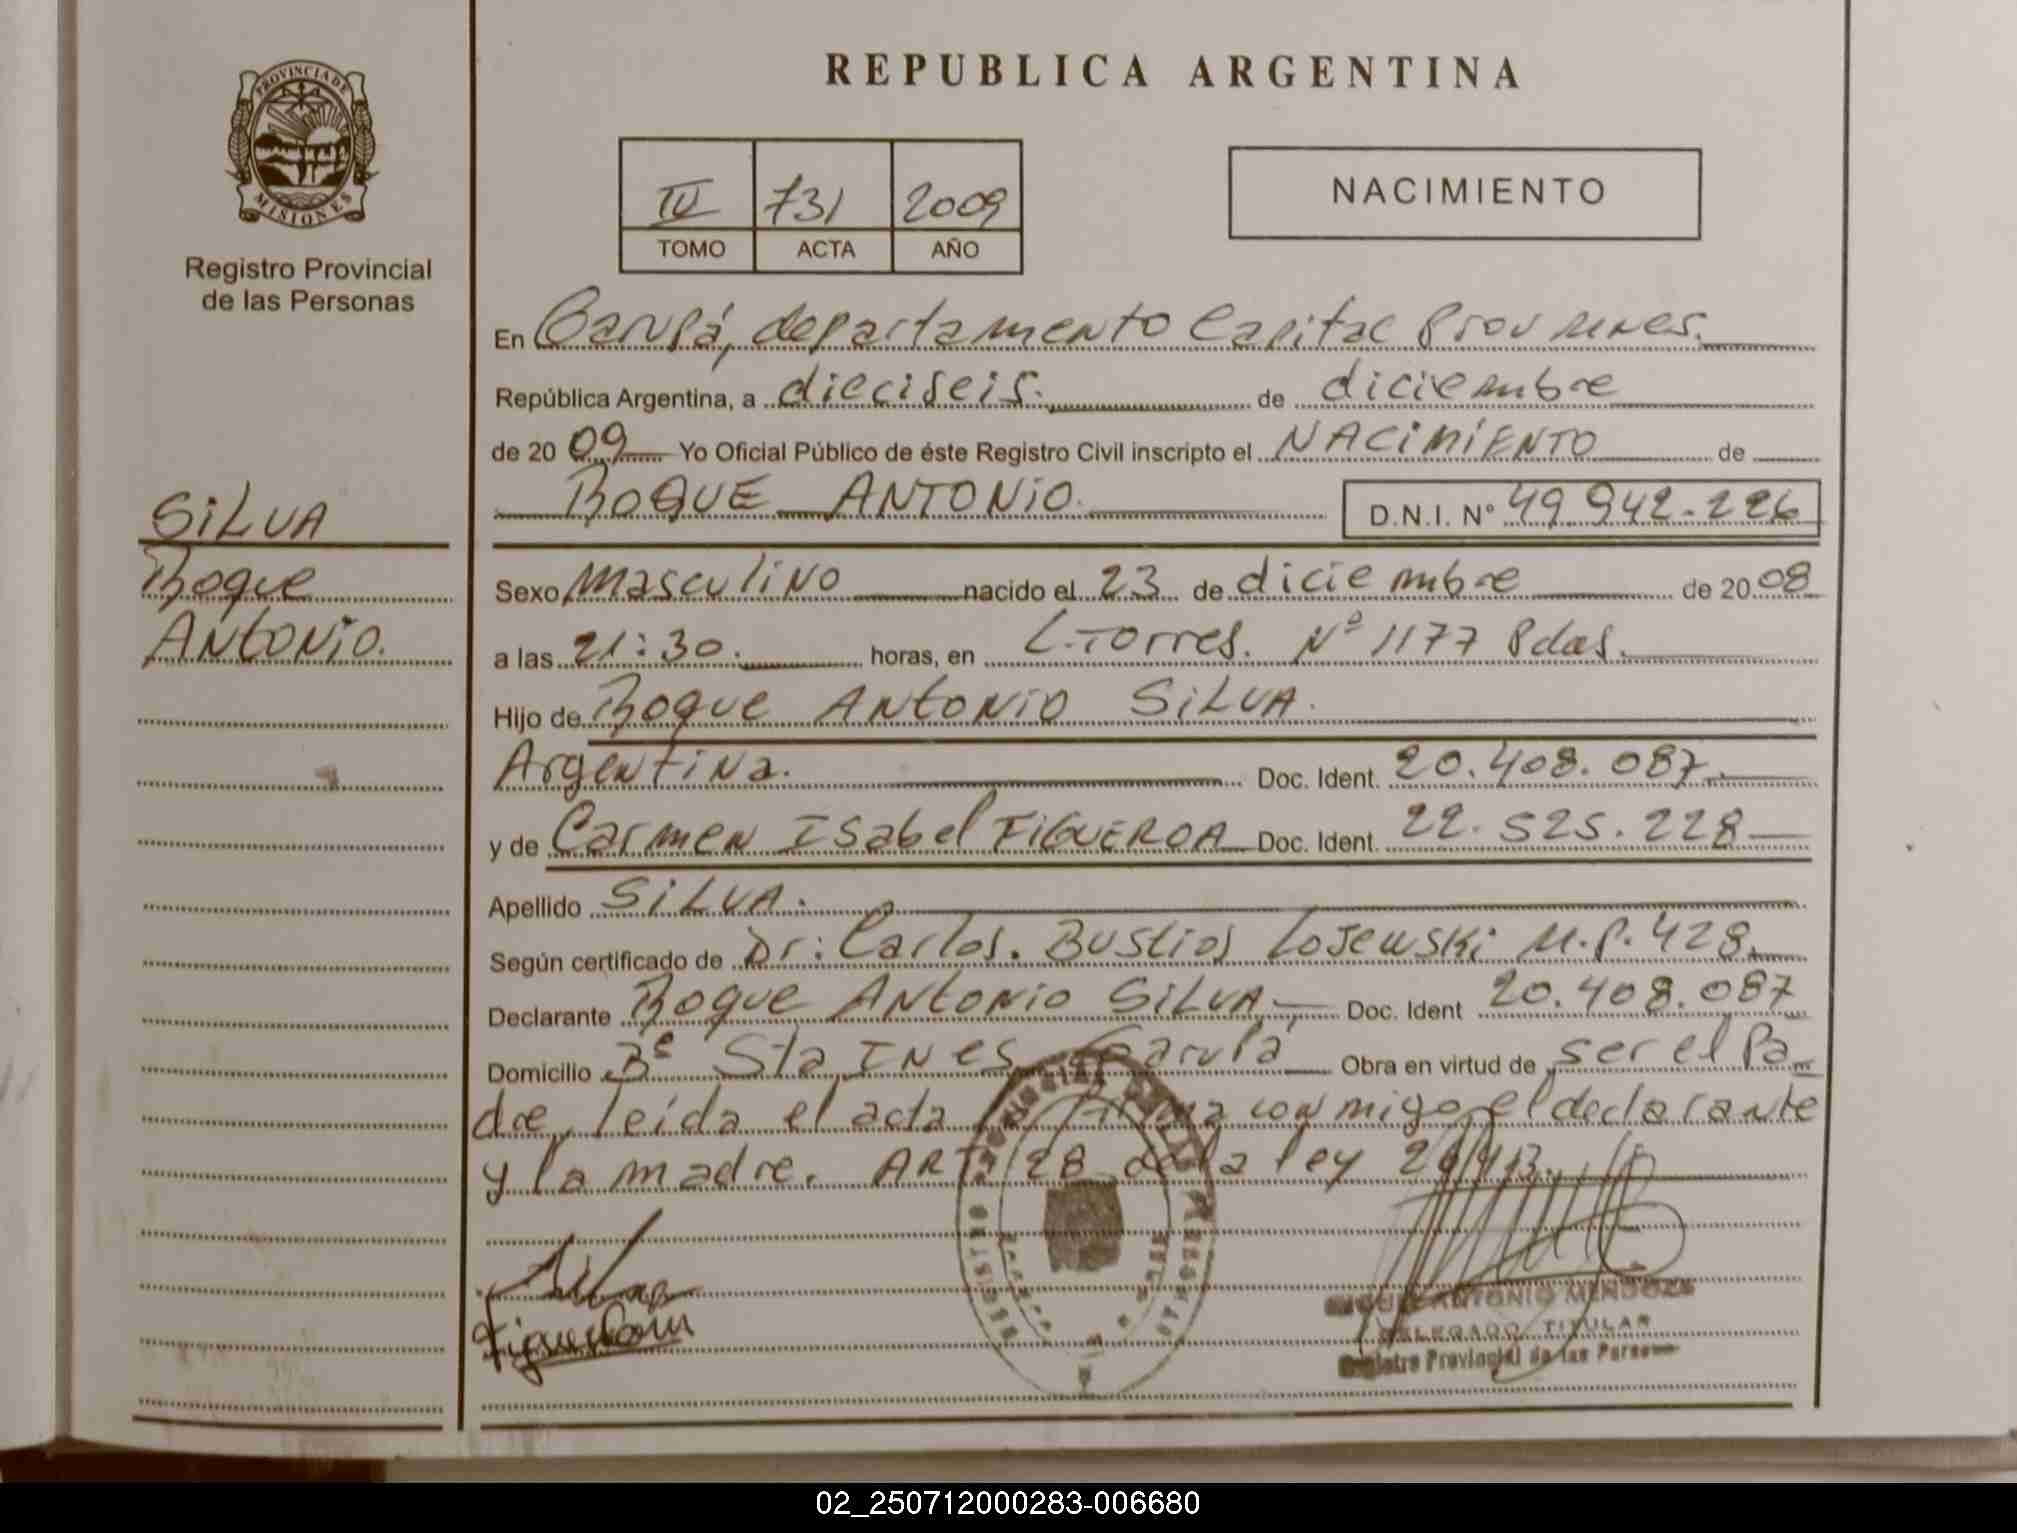 REPUBLICA ARGENTINA
PROVINCIA DE
MISIONES
Registro Provincial
de las Personas
IV 731 2009
TOMO ACTA AÑO
NACIMIENTO
En Garupá, departamento Capital Prov
República Argentina, a dieciseis. de diciembre
de 20 09 Yo Oficial Público de éste Registro Civil inscripto el NACIMIENTO de
ROQUE ANTONIO. D.N.I. N° 49.942.226
SILVA
Roque
ANTONIO.
Sexo Masculino nacido el 23 de diciembre de 20 08
a las 21:30. horas, en L. Torres. Nº 1177 Pdas.
Hijo de Roque ANTONIO SILVA.
Argentina. Doc. Ident. 20.408.087.
y de Carmen Isabel FIGUEROA Doc. Ident. 22.525.228
Apellido SILVA.
Según certificado de Dr: Carlos. Bustios Lojewski M.P. 428.
Declarante Roque Antonio SILVA, Doc. Ident 20.408.087
Domicilio Bº Sta INes Garupá Obra en virtud de ser el Pa-
dre, leída el acta firma conmigo el declarante
y la madre. ART. 28 de la ley 26.413.
ANTONIO MENDOZA
DELEGADO TITULAR
Registro Provincial de las Personas
02_250712000283-006680